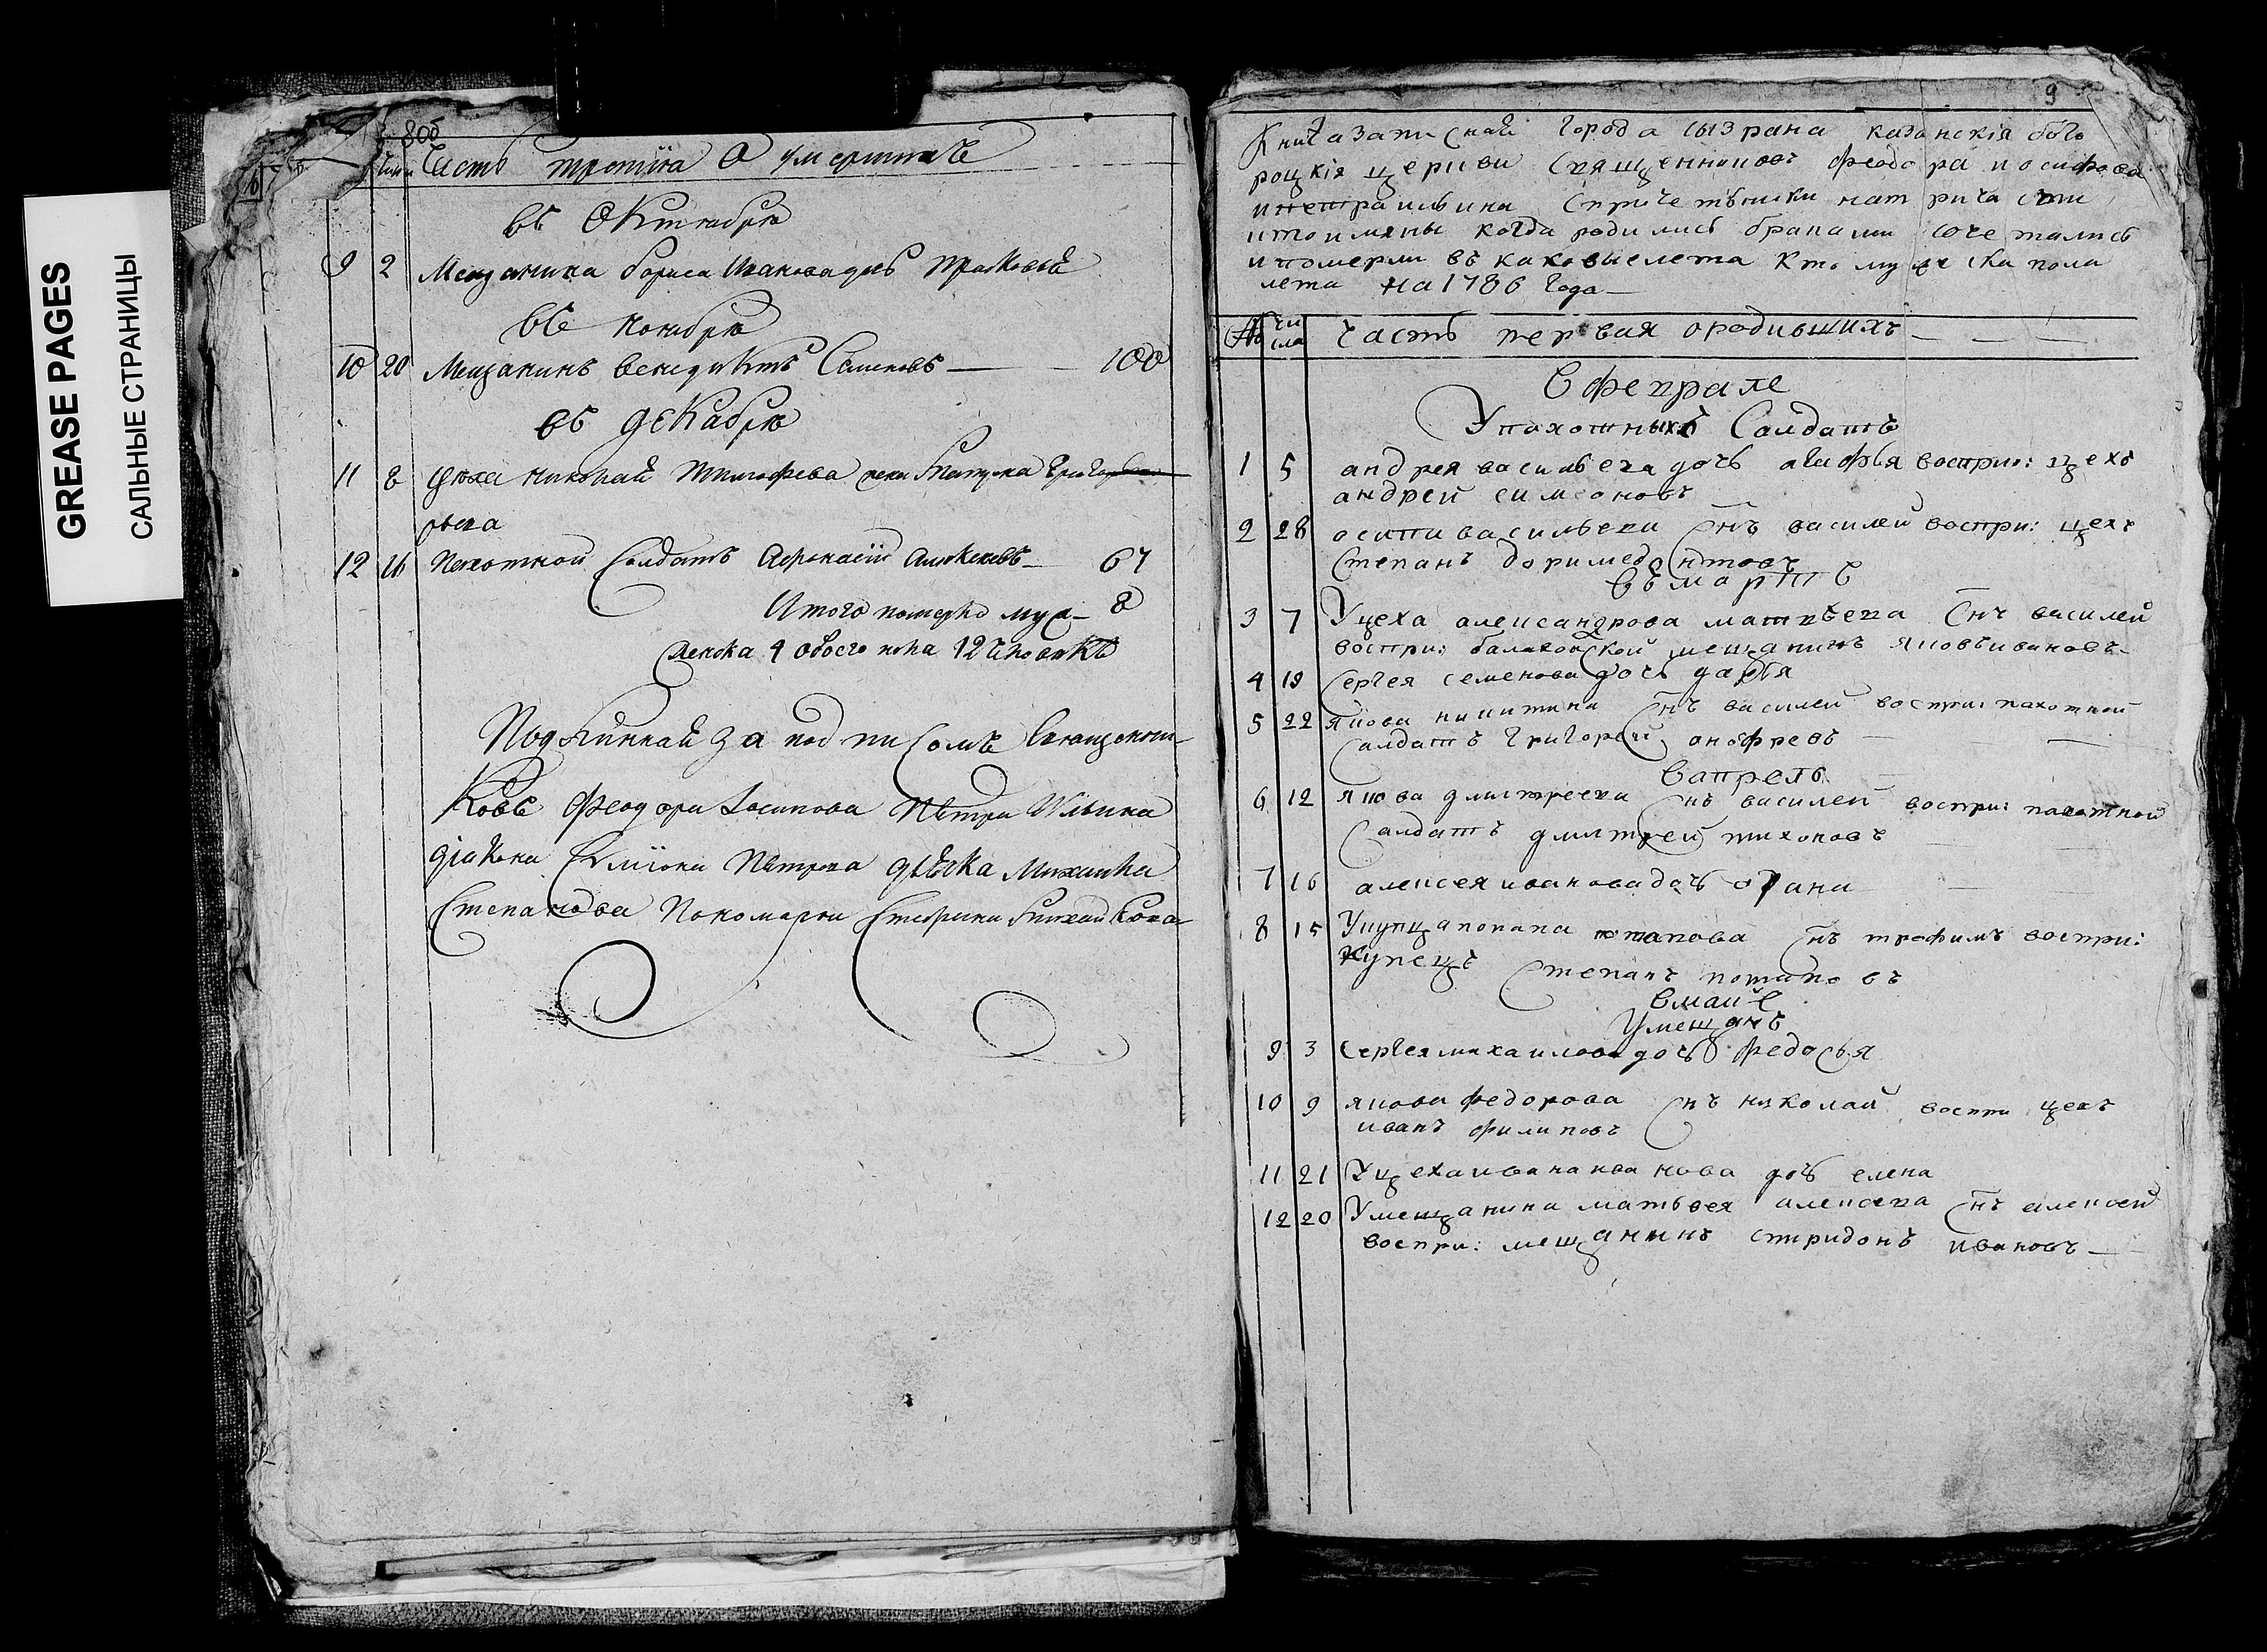 GREASE PAGES
САЛЬНЫЕ СТРАНИЦЫ
8об
Часть третïя О умершихъ
въ Октябрѣ
9 2 Мещанина бориса Иванова дочь
въ ноябрѣ
10 20 Мещанинъ Венидиктъ Семеновъ 100
въ декабрѣ
11 8 цеха николай тимофева
рьева
12 16 Пахотной Солдатъ Афонасïй Алексеевъ 67
Итого померло муж- 8
женска 4 обоего пола 12 человекъ
Подлинной за подписомъ Священни-
ковъ Феодора Иосипова Петра Ильина
дïакона Симïона Петрова дьячка Михаила
Степанова Пономаря
9
Книга записная города сызрана казанскïя бого
роцкïя церкви священниковъ феодора иосифова
и петра ильина с причетники матрича сти
кто имяны когда родились браками сочетались
и померли въ каковые лета кто муже ска пола
лета на 1786 года
№ чи сла часть первая о родившихъ
в феврале
У пахотныхъ Салдатъ
1 5 андрея васильева дочь агафья восприе: цехъ
андрей симеоновъ
2 28 осипа васильева снъ василей воспри: цехъ
Степанъ доримедонтовъ
въ мартѣ
3 7 У цеха александрова матвѣева снъ василей
воспри: балахонской мещанинъ яковъ ивановъ
4 19 Сергея семенова дочь дарья
5 22 якова никитина снъ василей воспри: пахотной
Салдатъ григорей онофревъ
в апрель
6 12 якова дмитреева снъ василей воспри: пахотной
Салдатъ дмитрей тихоновъ
7 16 алексея иванова дочь
8 15 У купца потапова снъ трофимъ воспри:
купецъ Степанъ потаповъ
в майѣ
У мещанъ
9 3 Сергея михаилова дочь федосья
10 9 якова федорова снъ николай воспри цехъ
иванъ филиповъ
11 21 У цеха ивана иванова дочь елена
12 20 У мещанина матвея алексева снъ алексей
воспри: мещанинъ спиридонъ ивановъ